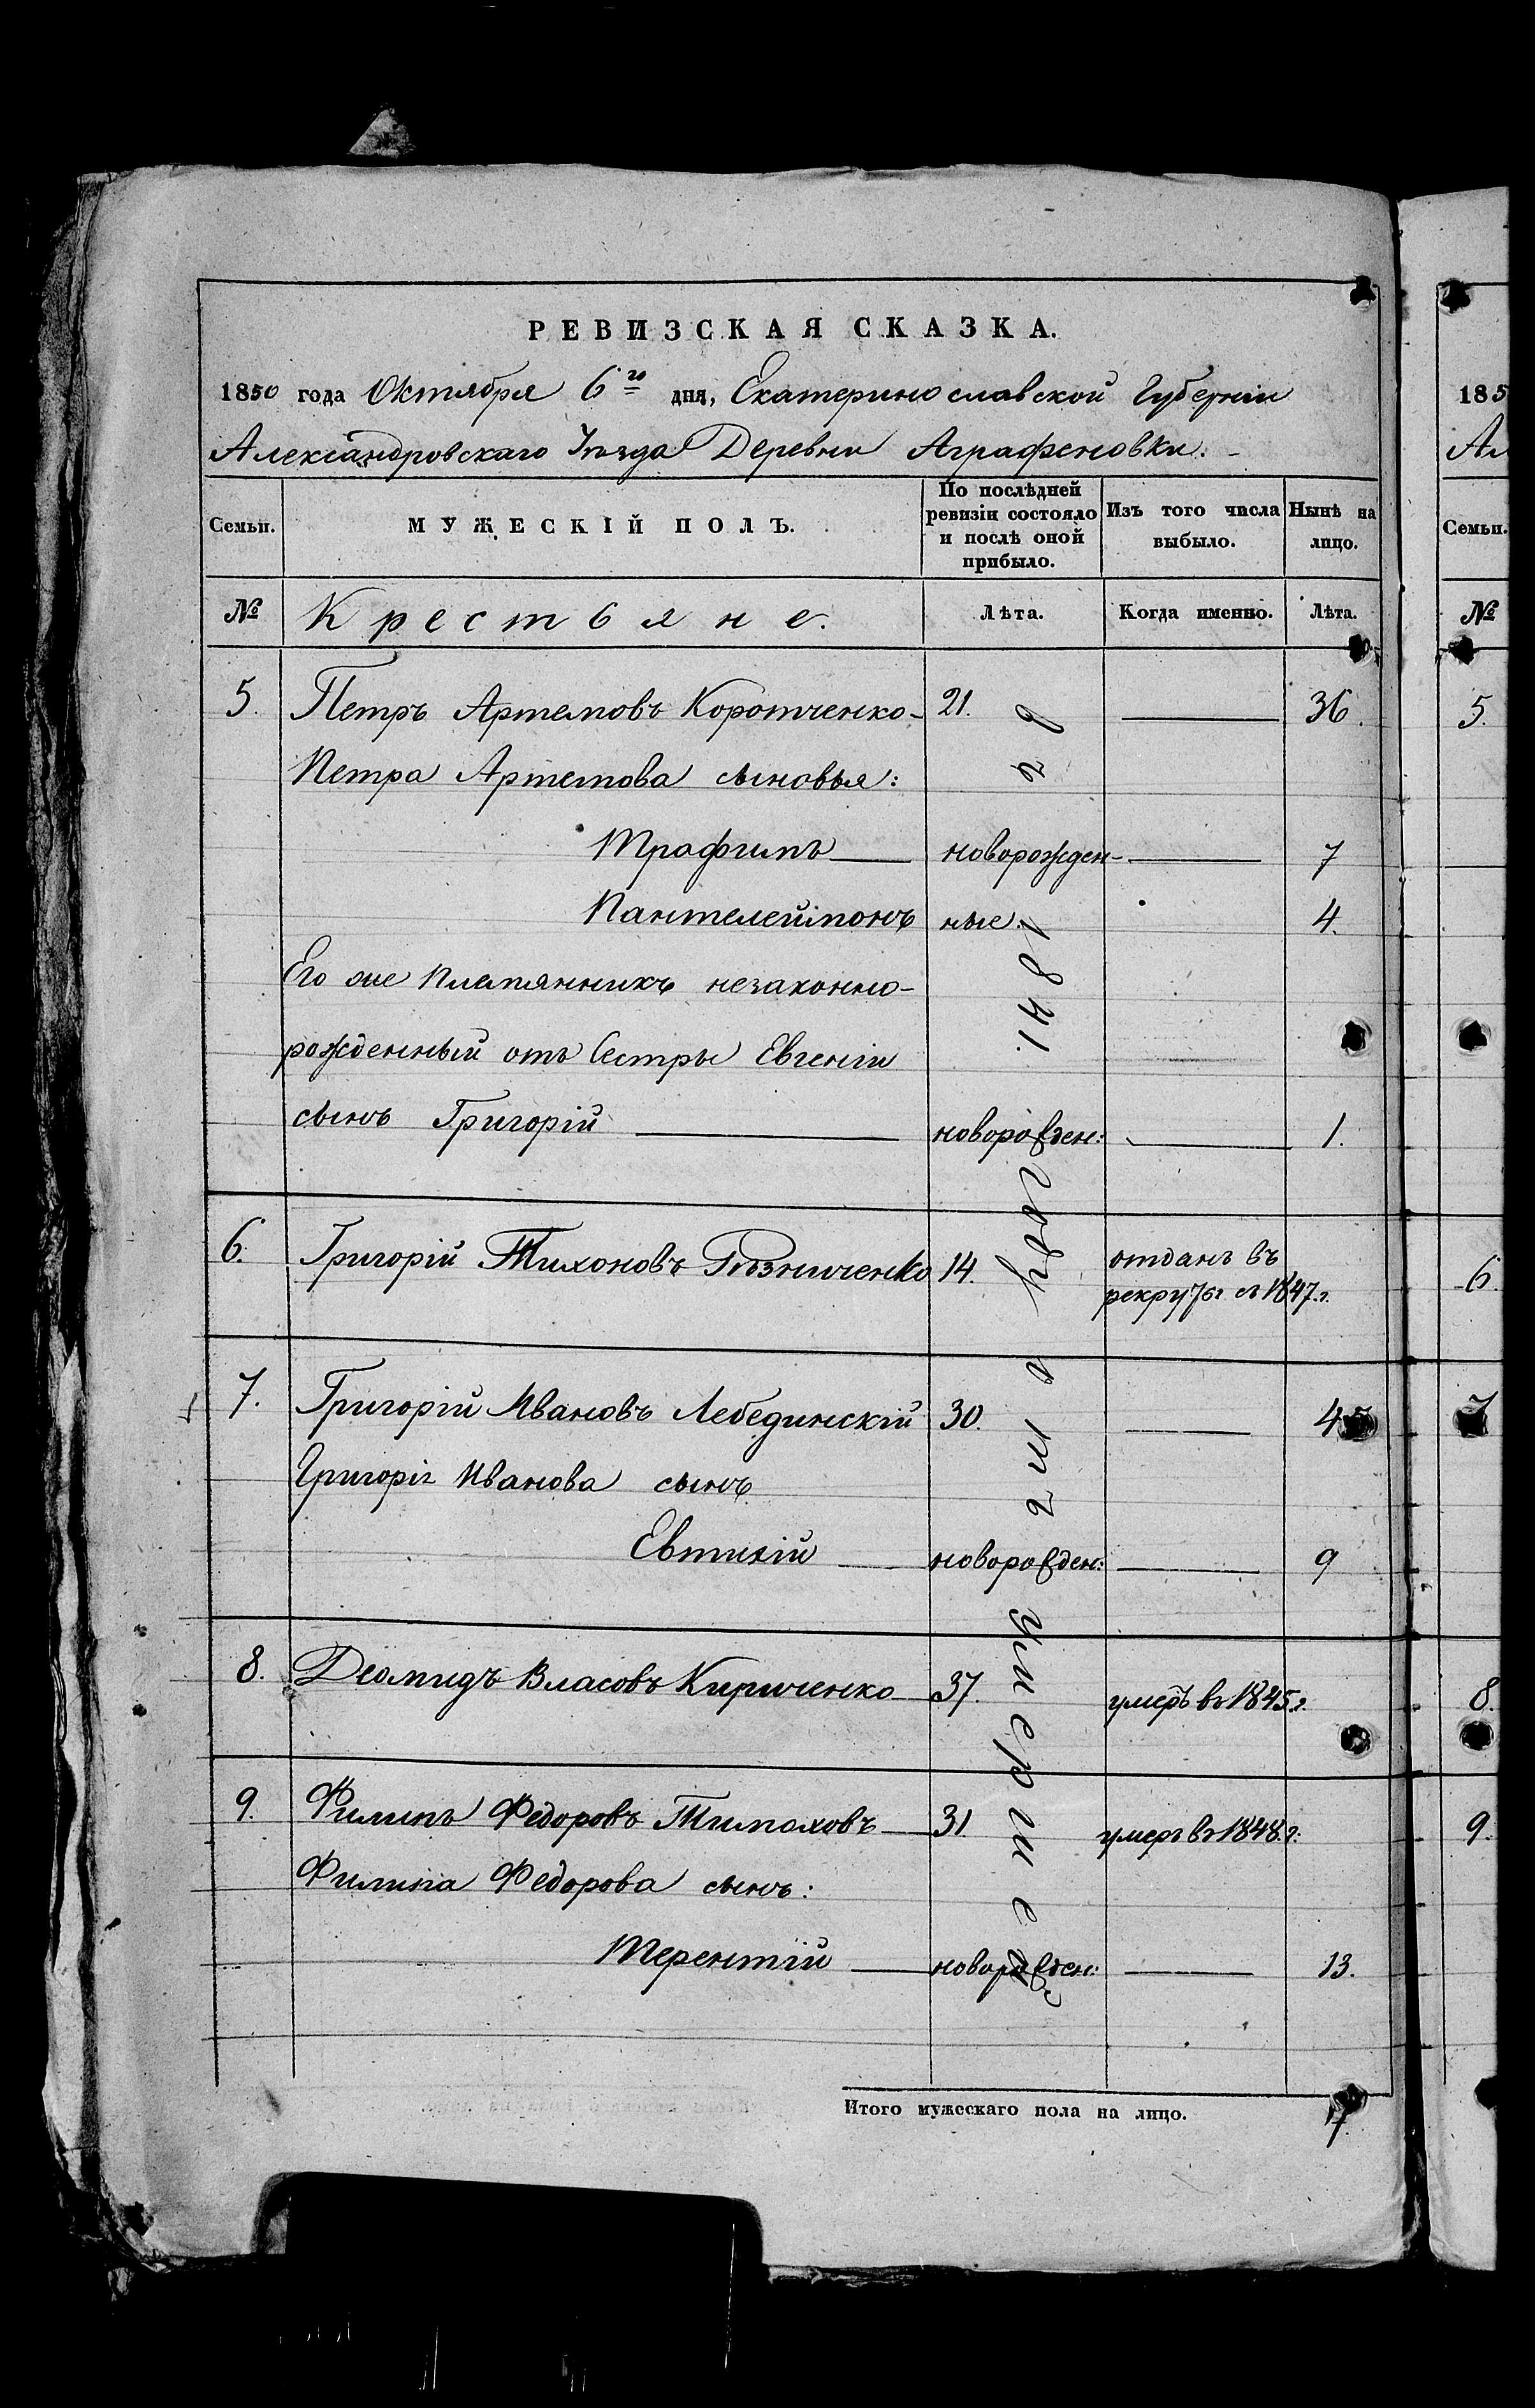 РЕВИЗСКАЯ СКАЗКА.
1850 года Октября 6го дня, Екатеринославской Губерніи
Александровскаго Уѣзда Деревни Аграфеновки.
Семьи.
МУЖЕСКІЙ ПОЛЪ.
По послѣдней
ревизіи состояло
и послѣ оной
прибыло.
Изъ того числа
выбыло.
Нынѣ на
лицо.
№ Крестьяне. Лѣта. Когда именно. Лѣта.
5. Петръ Артемовъ Коротченко 21. 36.
Петра Артемова сыновья:
Трафимъ новорожден- 7
Пантелеймонъ ные. 4.
Его же племянникъ незаконно-
рожденный отъ Сестры Евгеніи
сынъ Григорій новорожден: 1.
6. Григорій Тихоновъ Рѣзниченко 14. отданъ въ
рекруты въ 1847.г.
7. Григорій Ивановъ Лебединскій 30. 45
Григорія Иванова сынъ
Евтихій новорожден: 9
8. Деомидъ Власовъ Кириченко 37. умеръ въ 1845.г.
9. Филипъ Федоровъ Тимоховъ 31. умеръ въ 1848.г.
Филипа Федорова сынъ:
Терентій новорожден: 13.
1841. году
Итого мужескаго пола на лицо. 7.
185
Ал
Семьи.
№
5.
6.
7
8.
9.